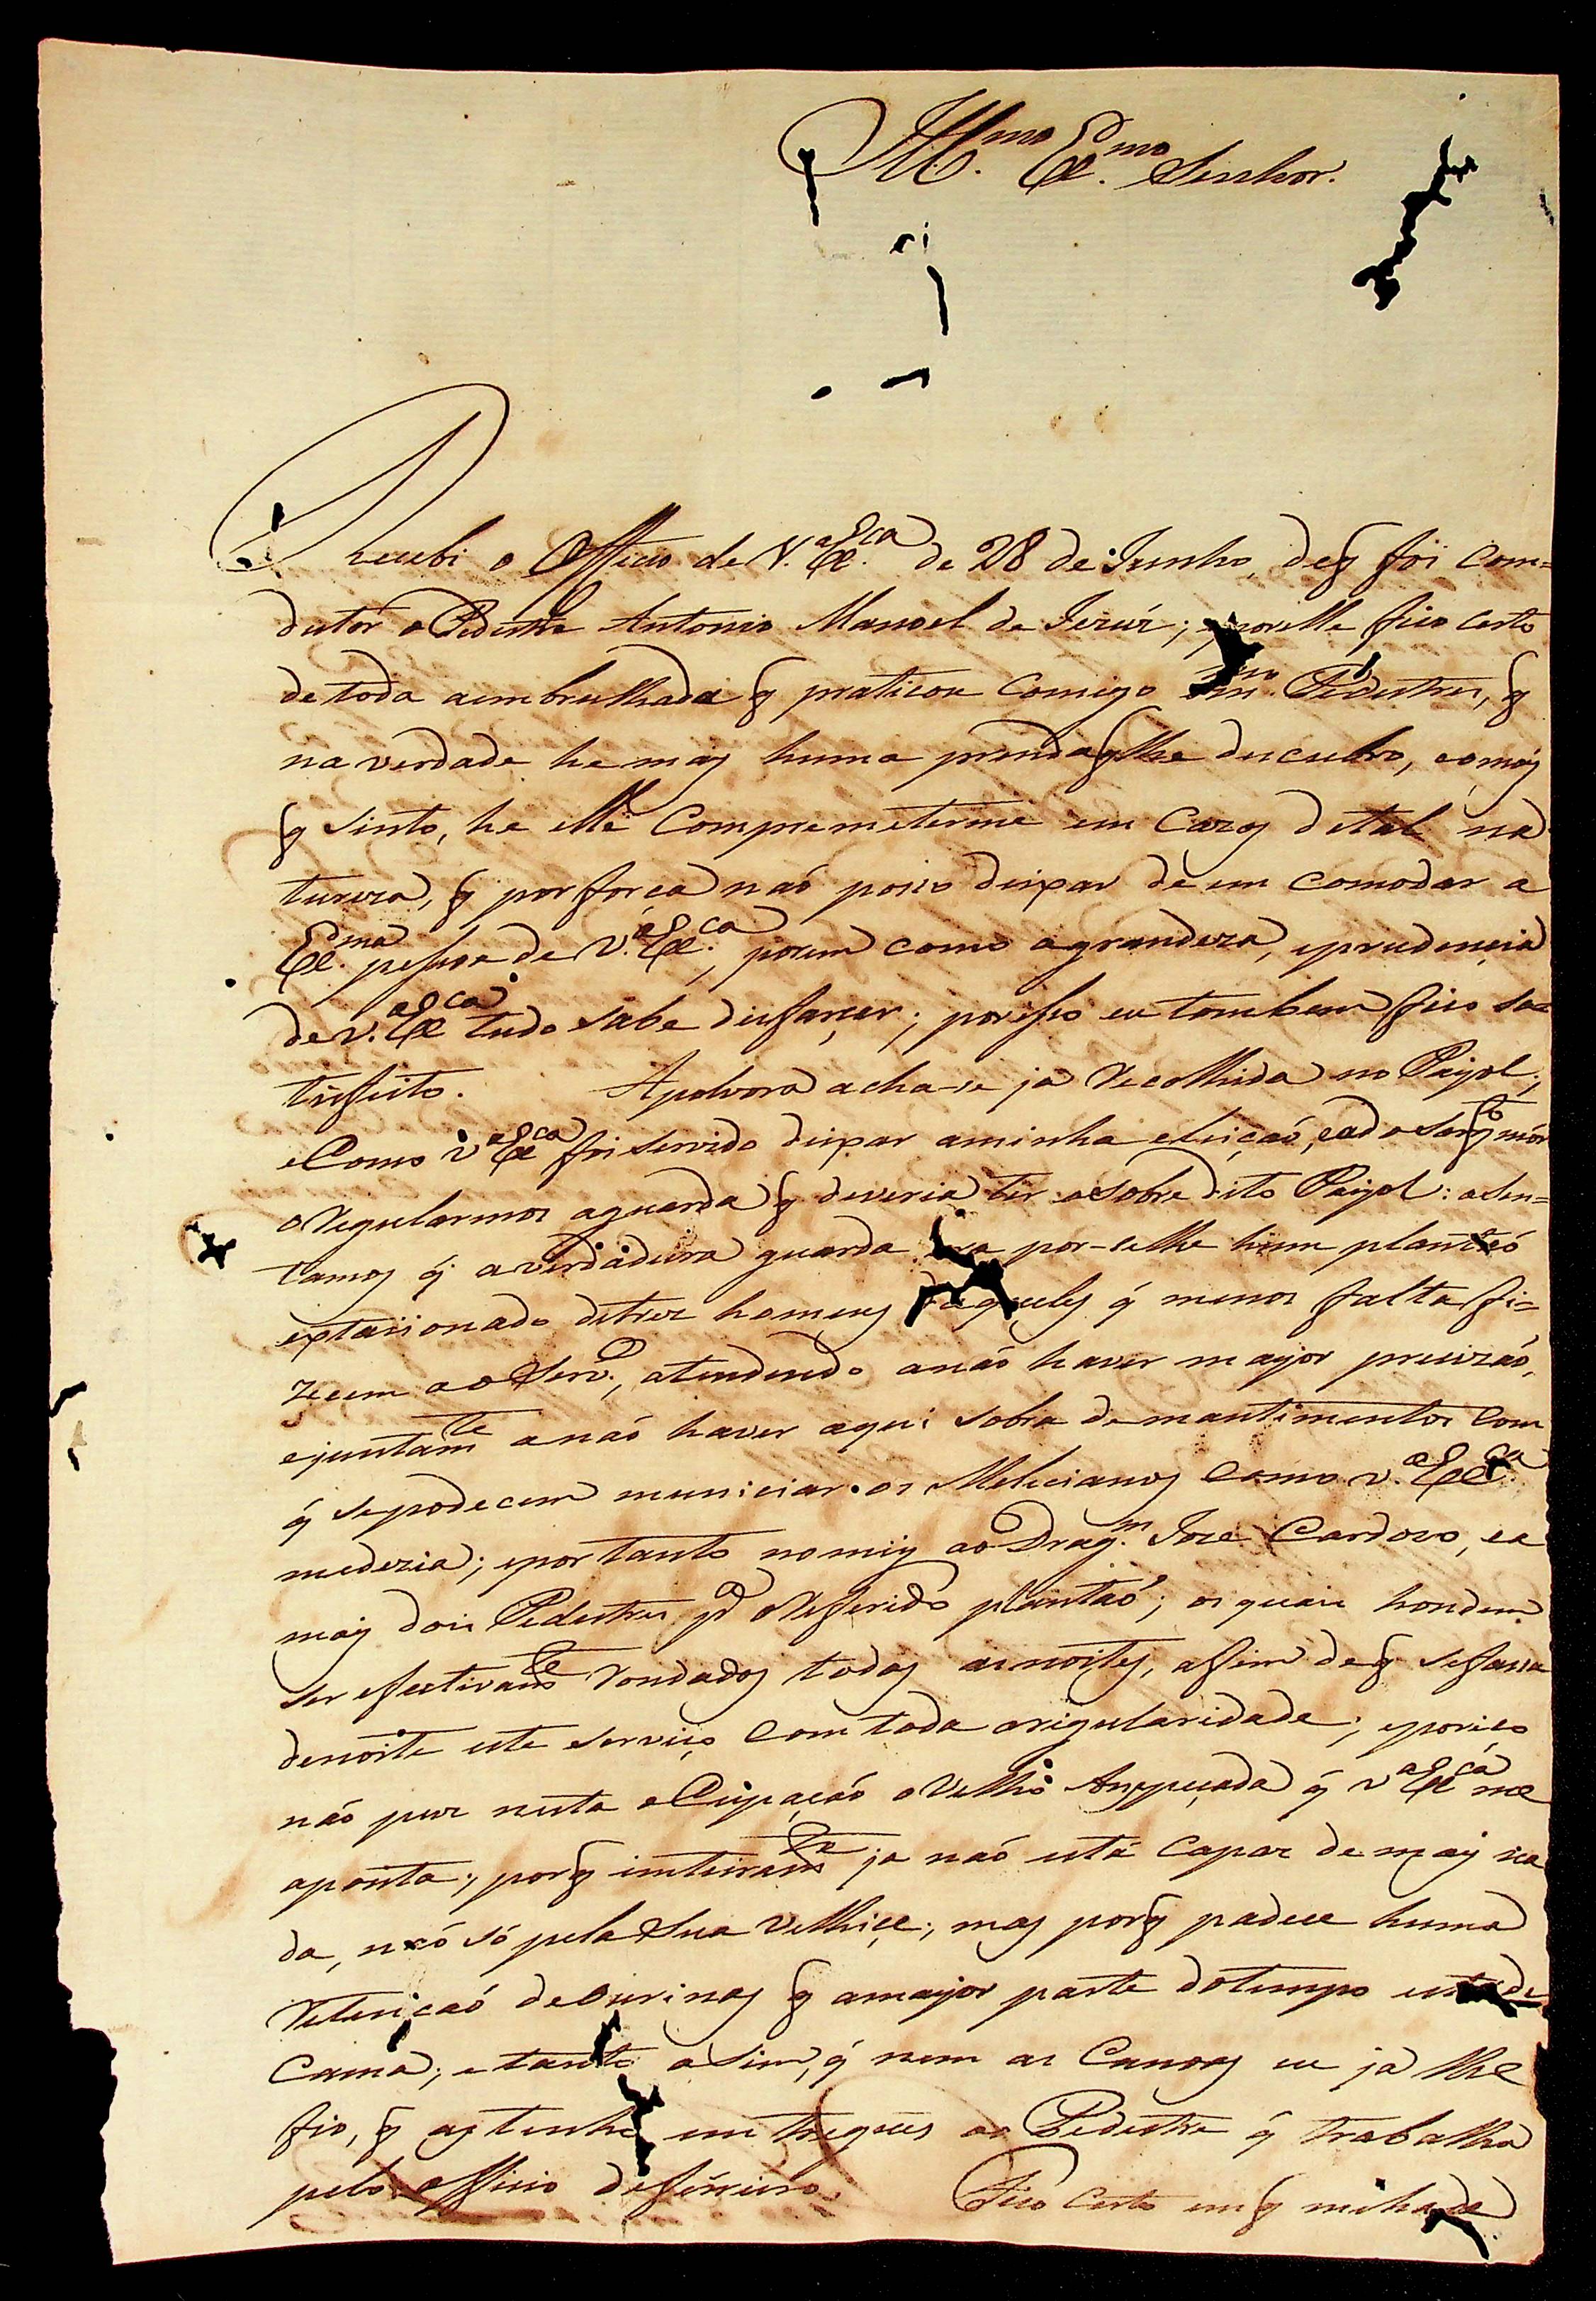 Ill.mo Ex.mo Senhor.
Recebi o Officio de V.a Ex.ca de 28 de Junho, de q foi com=
dutór o Pedestre Antonio Manoel de Jezus; e por elle fico certo
de toda a embrulhada q praticou comigo Pedestres, q
na verdade he may huma prenda q lhe descubro, e o may
q sinto, he elle Comprometerme em Cazos de tal na
tureza, q por força naõ posso deixar de em comodar a
Ex.ma pessoa de V.a Ex.ca, porem como a grandeza, e prudencia
de V.a Ex.ca tudo sabe disfarçar; por isso eu tombem fico sa=
tisfeito. A polvora acha-se ja Recolhida no Payol;
e Como V.a Ex.ca foi servido deixar a minha eleiçaõ, e a do Sarg.to mór
o Regularmos a guarda q deveria ter o sobre dito Payol: asen=
tamos q a verdadeira guarda era por-selhe hum plantaõ
extacionado de trez homens daqueles q menos falta fi=
zecem ao Serv.o, atendendo a naõ haver mayor precizaõ,
e juntam.te a naõ haver aqui sobra de mantimentos Com
q se podecem municiar os Melicianos Como V.a Ex.ca
me dezia; e por tanto nomiey ao Drag.m Joze Cardozo, e a
may dois Pedestres p.a o Referido plantaõ; os quais hondem
ser efectivam.te Rondados todas as noites, afim de q se fassa
de noite este serviço Com toda a rigularidade; e por iso
naõ puz nesta oCupaçaõ o Velho Anspeçada q V.a Ex.ca me
aponta; por q inteiram.te ja naõ está Capaz de may na
da, naõ só pela Sua Velhiçe; mas por q padece huma
Retençaõ de Ourinas q a mayor parte do tempo está de
Cama; e tanto asim, q nem as Canoas eu ja lhe
fio, q as tenho em tregues ao Pedestre q trabalha
pelo officio de ferreiro. Fico Certo em q me ha de